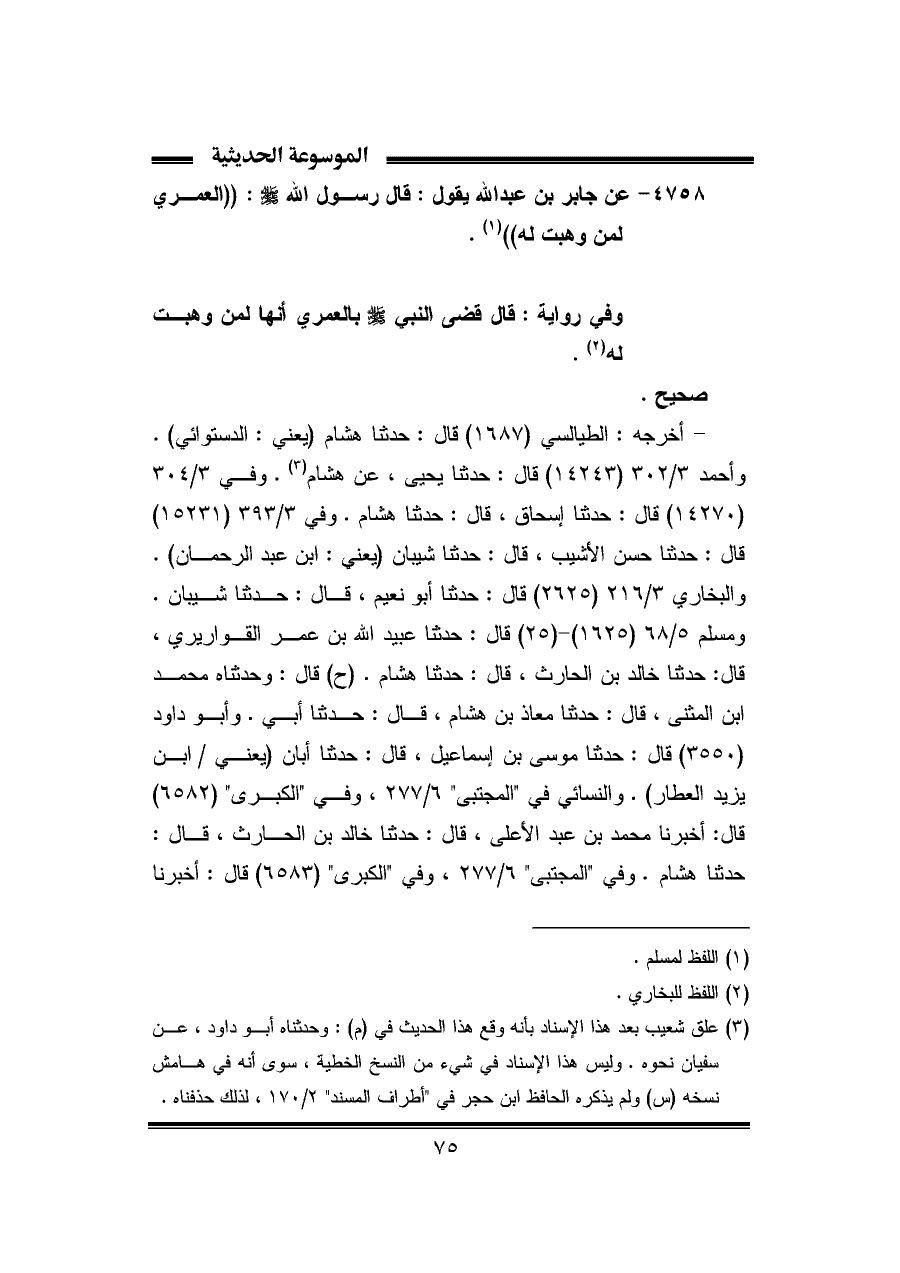 الموسوعة الحديثية
٤٧٥٨- عن جابر بن عبدالله يقول : قال رسول الله ﷺ : ((العمري
لمن وهبت له))(١) .
وفي رواية : قال قضى النبي ﷺ بالعمري أنها لمن وهبت
له(٢) .
صحيح .
- أخرجه : الطيالسي (١٦٨٧) قال : حدثنا هشام (يعني : الدستوائي) .
وأحمد ٣٠٢/٣ (١٤٢٤٣) قال : حدثنا يحيى ، عن هشام(٣) . وفي ٣٠٤/٣
(١٤٢٧٠) قال : حدثنا إسحاق ، قال : حدثنا هشام . وفي ٣٩٣/٣ (١٥٢٣١)
قال : حدثنا حسن الأشيب ، قال : حدثنا شيبان (يعني : ابن عبد الرحمان) .
والبخاري ٢١٦/٣ (٢٦٢٥) قال : حدثنا أبو نعيم ، قال : حدثنا شيبان .
ومسلم ٦٨/٥ (١٦٢٥)-(٢٥) قال : حدثنا عبيد الله بن عمر القواريري ،
قال: حدثنا خالد بن الحارث ، قال : حدثنا هشام . (ح) قال : وحدثناه محمد
ابن المثنى ، قال : حدثنا معاذ بن هشام ، قال : حدثنا أبي . وأبو داود
(٣٥٥٠) قال : حدثنا موسى بن إسماعيل ، قال : حدثنا أبان (يعني / ابن
يزيد العطار) . والنسائي في "المجتبى" ٢٧٧/٦ ، وفي "الكبرى" (٦٥٨٢)
قال: أخبرنا محمد بن عبد الأعلى ، قال : حدثنا خالد بن الحارث ، قال :
حدثنا هشام . وفي "المجتبى" ٢٧٧/٦ ، وفي "الكبرى" (٦٥٨٣) قال : أخبرنا
(١) اللفظ لمسلم .
(٢) اللفظ للبخاري .
(٣) علق شعيب بعد هذا الإسناد بأنه وقع هذا الحديث في (م) : وحدثناه أبو داود ، عن
سفيان نحوه . وليس هذا الإسناد في شيء من النسخ الخطية ، سوى أنه في هامش
نسخه (س) ولم يذكره الحافظ ابن حجر في "أطراف المسند" ١٧٠/٢ ، لذلك حذفناه .
٧٥